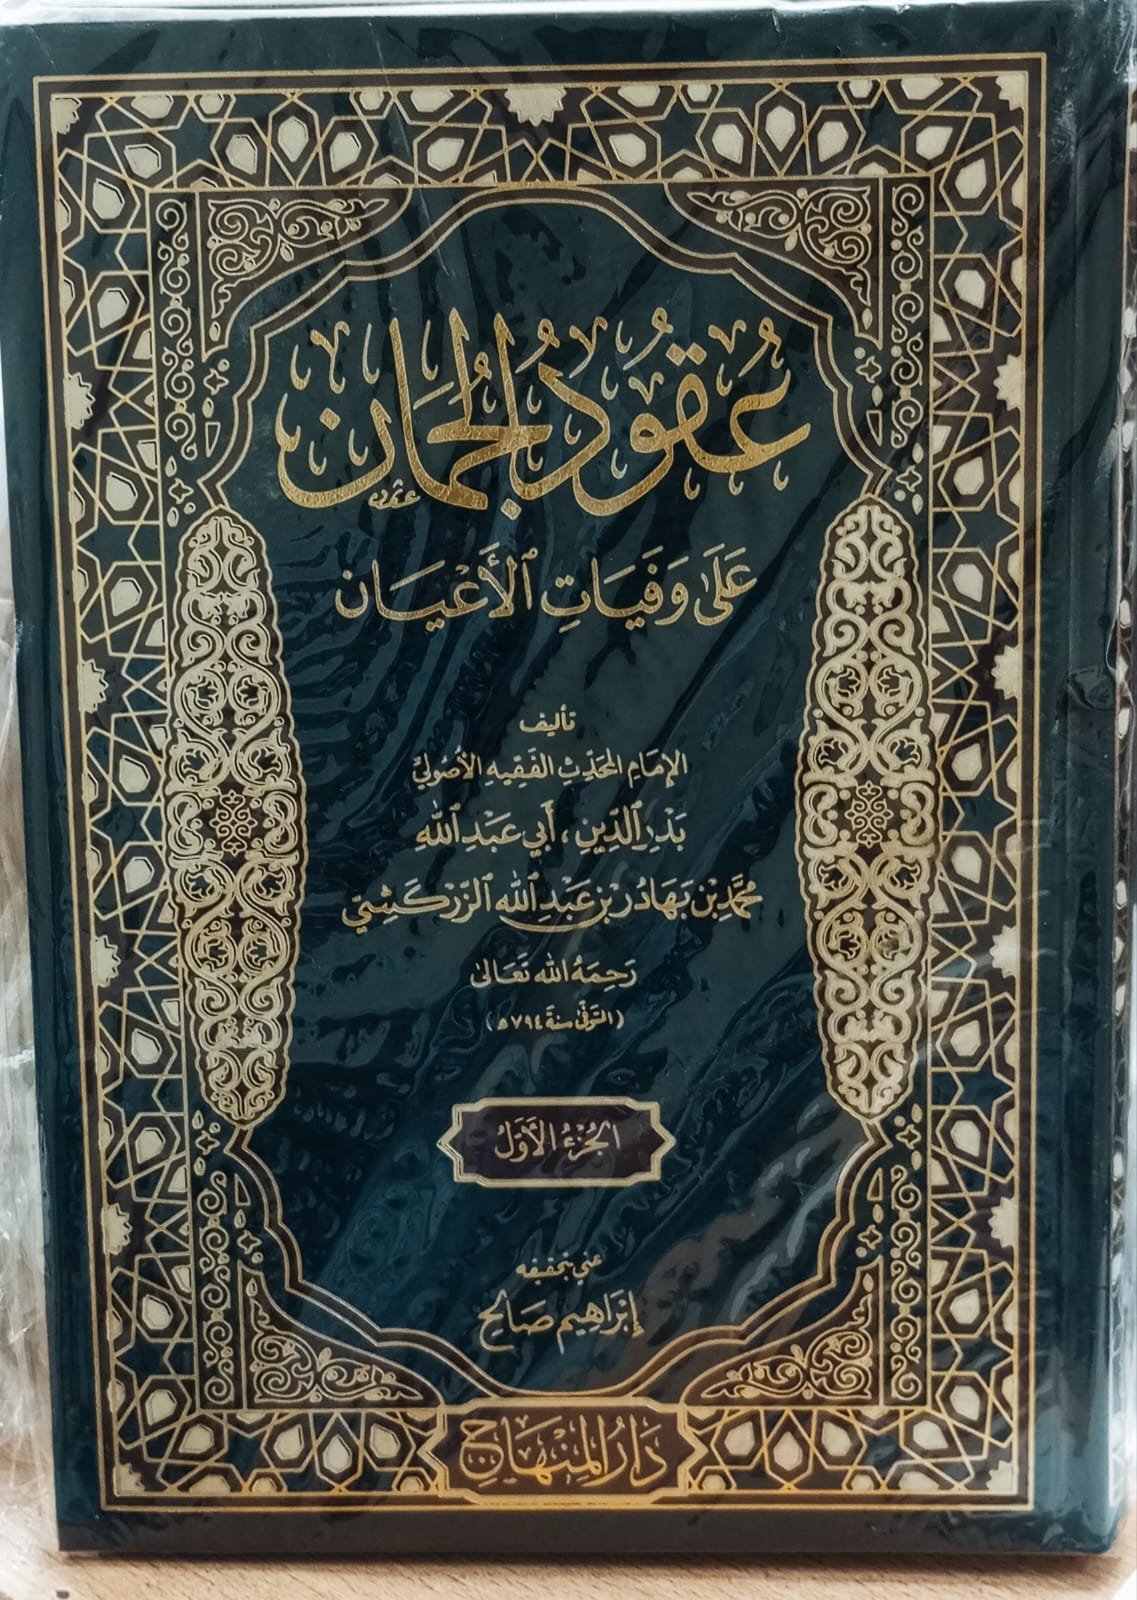 عُقُودُ الجُمَان
عَلَى وَفَيَاتِ ٱلْأَعْيَان
تأليف
الإمَامِ المُحَدِّثِ الفَقِيهِ الأُصُولِيِّ
بَدْرِ ٱلدِّينِ، أَبِي عَبْدِ ٱللهِ
مُحَمَّدِ بْنِ بَهَادُرَ بْنِ عَبْدِ ٱللهِ ٱلزَّرْكَشِيِّ
رَحِمَهُ اللهُ تَعَالَى
(المتوفى سنة ٧٩٤ هـ)
الجُزْءُ الأَوَّلُ
عني بتحقيقه
إِبْرَاهِيم صَالِح
دَارُ المِنْهَاجِ